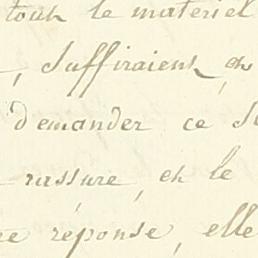 tout le matériel
, suffiraient, en
demander ce
rassure, et le
réponse, elle